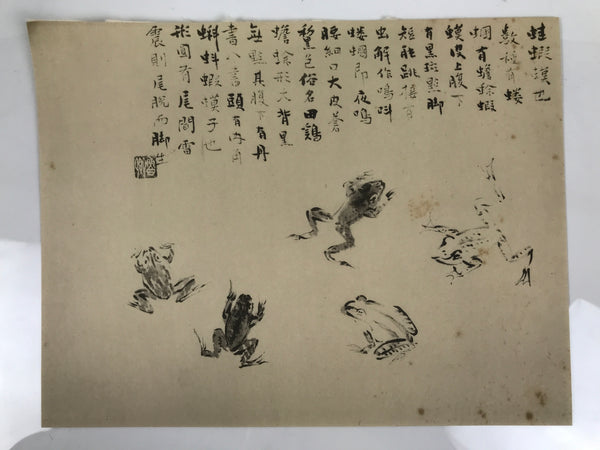 蛙蝦蟆也
數種有螻
蟈有蟾蜍蝦
蟆皮上腹下
有黑斑點脚
短能跳接百
虫解作鳴呌
螻蟈即夜鳴
腰細口大皮蒼
黧色俗名田鷄
蟾蜍形大背黑
無點其腹下有丹
書八字頭有肉角
蝌蚪蝦蟆子也
形圓有尾聞雷
震則尾脫而脚生